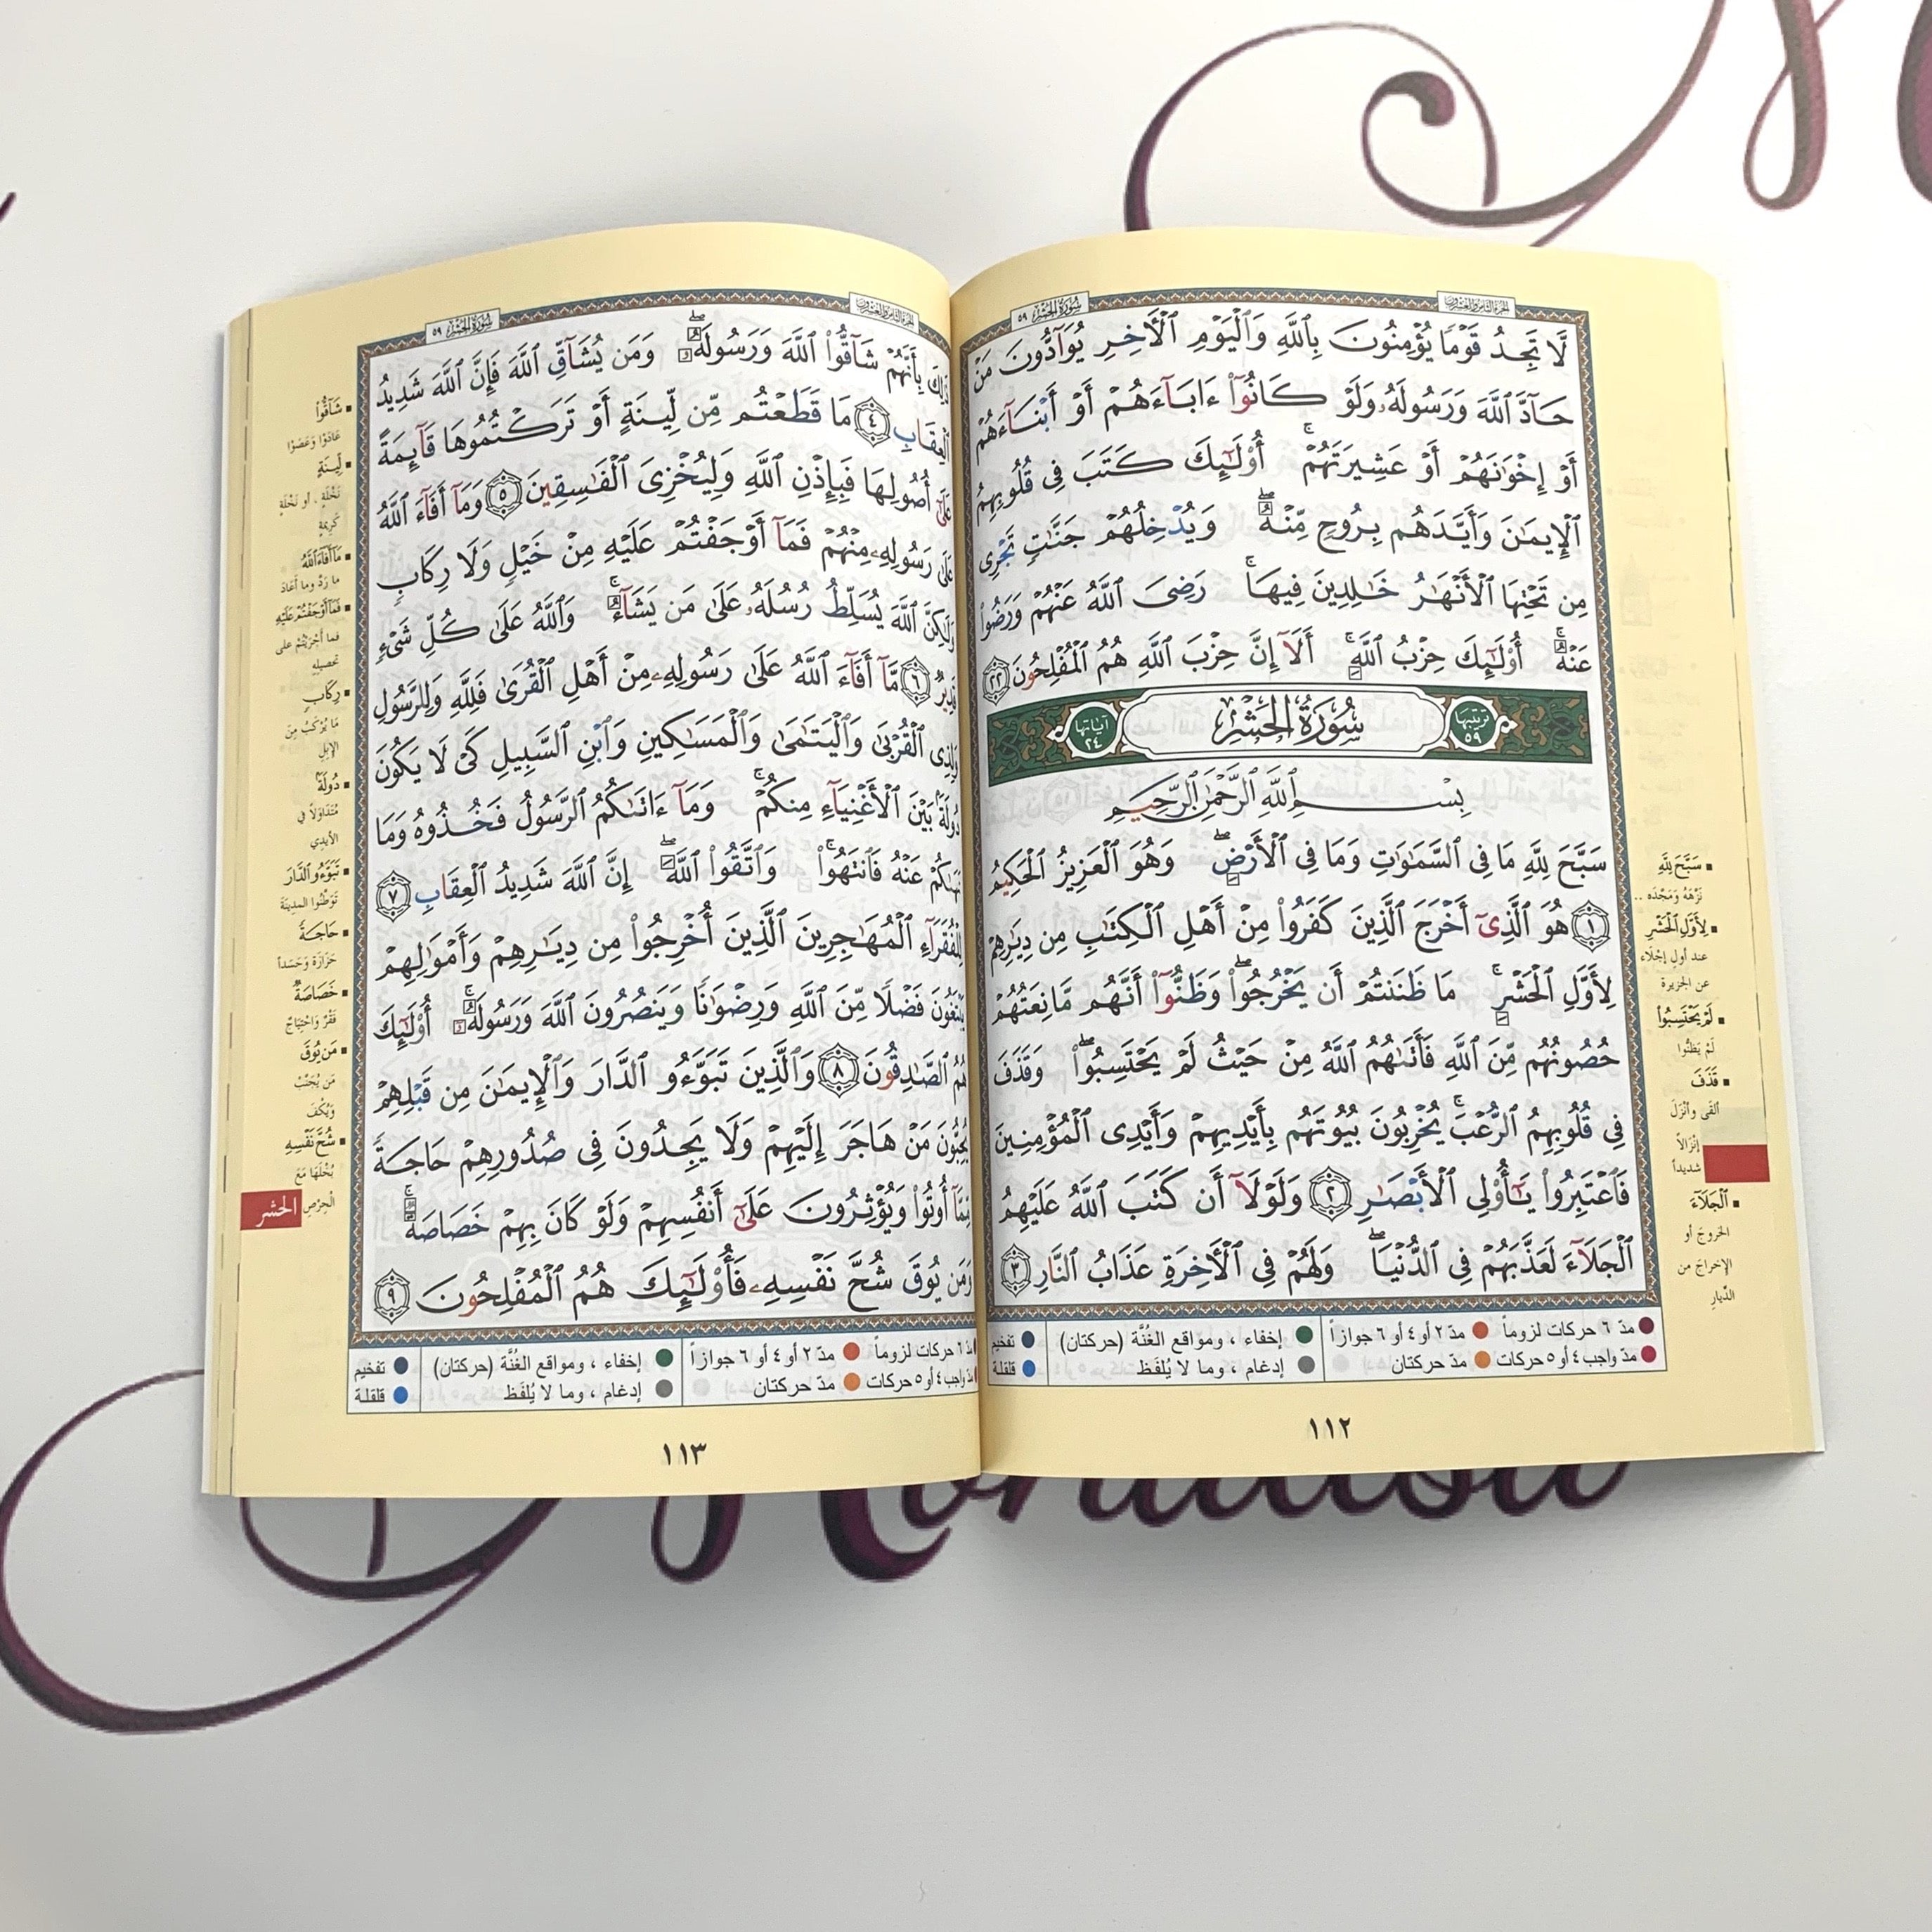 الجزء الثامن والعشرون
سُورَةُ الحَشْرِ ٥٩
لَّا تَجِدُ قَوْمًا يُؤْمِنُونَ بِٱللَّهِ وَٱلْيَوْمِ ٱلْأَخِرِ يُوَآدُّونَ مَنْ
حَآدَّ ٱللَّهَ وَرَسُولَهُۥ وَلَوْ كَانُوٓا۟ ءَابَآءَهُمْ أَوْ أَبْنَآءَهُمْ
أَوْ إِخْوَٰنَهُمْ أَوْ عَشِيرَتَهُمْ ۚ أُو۟لَٰٓئِكَ كَتَبَ فِى قُلُوبِهِمُ
ٱلْإِيمَٰنَ وَأَيَّدَهُم بِرُوحٍ مِّنْهُ ۖ وَيُدْخِلُهُمْ جَنَّٰتٍ تَجْرِى
مِن تَحْتِهَا ٱلْأَنْهَٰرُ خَٰلِدِينَ فِيهَا ۚ رَضِىَ ٱللَّهُ عَنْهُمْ وَرَضُوا۟
عَنْهُ ۚ أُو۟لَٰٓئِكَ حِزْبُ ٱللَّهِ ۚ أَلَآ إِنَّ حِزْبَ ٱللَّهِ هُمُ ٱلْمُفْلِحُونَ ٢٢
ترتيبها ٥٩ سُورَةُ الحَشْرِ آياتها ٢٤
بِسْمِ ٱللَّهِ ٱلرَّحْمَٰنِ ٱلرَّحِيمِ
سَبَّحَ لِلَّهِ مَا فِى ٱلسَّمَٰوَٰتِ وَمَا فِى ٱلْأَرْضِ ۖ وَهُوَ ٱلْعَزِيزُ ٱلْحَكِيمُ
١ هُوَ ٱلَّذِىٓ أَخْرَجَ ٱلَّذِينَ كَفَرُوا۟ مِنْ أَهْلِ ٱلْكِتَٰبِ مِن دِيَٰرِهِمْ
لِأَوَّلِ ٱلْحَشْرِ ۚ مَا ظَنَنتُمْ أَن يَخْرُجُوا۟ ۖ وَظَنُّوٓا۟ أَنَّهُم مَّانِعَتُهُمْ
حُصُونُهُم مِّنَ ٱللَّهِ فَأَتَىٰهُمُ ٱللَّهُ مِنْ حَيْثُ لَمْ يَحْتَسِبُوا۟ ۖ وَقَذَفَ
فِى قُلُوبِهِمُ ٱلرُّعْبَ ۚ يُخْرِبُونَ بُيُوتَهُم بِأَيْدِيهِمْ وَأَيْدِى ٱلْمُؤْمِنِينَ
فَٱعْتَبِرُوا۟ يَٰٓأُو۟لِى ٱلْأَبْصَٰرِ ٢ وَلَوْلَآ أَن كَتَبَ ٱللَّهُ عَلَيْهِمُ
ٱلْجَلَآءَ لَعَذَّبَهُمْ فِى ٱلدُّنْيَا ۖ وَلَهُمْ فِى ٱلْأَخِرَةِ عَذَابُ ٱلنَّارِ ٣
سَبَّحَ لِلَّهِ
نَزَّهَهُ وَمَجَّدَه ..
لِأَوَّلِ الْحَشْرِ
عند أول إجْلاء
عن الجزيرة
لَمْ يَحْتَسِبُوا
لَمْ يَظُنُّوا
قَذَفَ
ألقى وأنْزَلَ
إنْزَالاً
شديداً
ٱلْجَلَآءَ
الخروج أو
الإخراج من
الدِّيار
مدّ ٦ حركات لزوماً مدّ ٢ أو ٤ أو ٦ جوازاً إخفاء ، ومواقع الغُنَّة (حركتان) تفخيم
مدّ واجب ٤ أو ٥ حركات مدّ حركتان إدغام ، وما لا يُلفَظ قلقلة
١١٢
الجزء الثامن والعشرون
سُورَةُ الحَشْرِ ٥٩
ذَٰلِكَ بِأَنَّهُمْ شَآقُّوا۟ ٱللَّهَ وَرَسُولَهُۥ ۖ وَمَن يُشَآقِّ ٱللَّهَ فَإِنَّ ٱللَّهَ شَدِيدُ
ٱلْعِقَابِ ٤ مَا قَطَعْتُم مِّن لِّينَةٍ أَوْ تَرَكْتُمُوهَا قَآئِمَةً
عَلَىٰٓ أُصُولِهَا فَبِإِذْنِ ٱللَّهِ وَلِيُخْزِىَ ٱلْفَٰسِقِينَ ٥ وَمَآ أَفَآءَ ٱللَّهُ
عَلَىٰ رَسُولِهِۦ مِنْهُمْ فَمَآ أَوْجَفْتُمْ عَلَيْهِ مِنْ خَيْلٍ وَلَا رِكَابٍ
وَلَٰكِنَّ ٱللَّهَ يُسَلِّطُ رُسُلَهُۥ عَلَىٰ مَن يَشَآءُ ۚ وَٱللَّهُ عَلَىٰ كُلِّ شَىْءٍ
قَدِيرٌ ٦ مَّآ أَفَآءَ ٱللَّهُ عَلَىٰ رَسُولِهِۦ مِنْ أَهْلِ ٱلْقُرَىٰ فَلِلَّهِ وَلِلرَّسُولِ
وَلِذِى ٱلْقُرْبَىٰ وَٱلْيَتَٰمَىٰ وَٱلْمَسَٰكِينِ وَٱبْنِ ٱلسَّبِيلِ كَىْ لَا يَكُونَ
دُولَةًۢ بَيْنَ ٱلْأَغْنِيَآءِ مِنكُمْ ۚ وَمَآ ءَاتَىٰكُمُ ٱلرَّسُولُ فَخُذُوهُ وَمَا
نَهَىٰكُمْ عَنْهُ فَٱنتَهُوا۟ ۚ وَٱتَّقُوا۟ ٱللَّهَ ۖ إِنَّ ٱللَّهَ شَدِيدُ ٱلْعِقَابِ ٧
لِلْفُقَرَآءِ ٱلْمُهَٰجِرِينَ ٱلَّذِينَ أُخْرِجُوا۟ مِن دِيَٰرِهِمْ وَأَمْوَٰلِهِمْ
يَبْتَغُونَ فَضْلًا مِّنَ ٱللَّهِ وَرِضْوَٰنًا وَيَنصُرُونَ ٱللَّهَ وَرَسُولَهُۥٓ ۚ أُو۟لَٰٓئِكَ
هُمُ ٱلصَّٰدِقُونَ ٨ وَٱلَّذِينَ تَبَوَّءُو ٱلدَّارَ وَٱلْإِيمَٰنَ مِن قَبْلِهِمْ
يُحِبُّونَ مَنْ هَاجَرَ إِلَيْهِمْ وَلَا يَجِدُونَ فِى صُدُورِهِمْ حَاجَةً
مِّمَّآ أُوتُوا۟ وَيُؤْثِرُونَ عَلَىٰٓ أَنفُسِهِمْ وَلَوْ كَانَ بِهِمْ خَصَاصَةٌ ۚ
وَمَن يُوقَ شُحَّ نَفْسِهِۦ فَأُو۟لَٰٓئِكَ هُمُ ٱلْمُفْلِحُونَ ٩
شَآقُّوا
عَادَوْا وَعَصَوْا
لِّينَةٍ
نَخْلَةٍ ، أو نَخْلَةٍ
كَرِيمَةٍ
مَا أَفَاءَ اللَّهُ
ما رَدَّ وما أعَادَ
فَمَا أَوْجَفْتُمْ عَلَيْهِ
فما أجْرَيْتُمْ على
تحصيله
رِكَابٍ
مَا يُرْكَبُ مِنَ
الإبل
دُولَةً
مُتَدَاوَلاً في
الأيدي
تَبَوَّءُو الدَّارَ
تَوَطَّنُوا المدينَةَ
حَاجَةً
حَزَازَةً وَحَسَداً
خَصَاصَةٌ
فَقْرٌ وَاحْتِيَاجٌ
مَن يُوقَ
مَن يُجَنَّبْ
وَيُكْفَ
شُحَّ نَفْسِهِ
بُخْلَهَا مَعَ
الْحِرْصِ
الحشر
مدّ ٦ حركات لزوماً مدّ ٢ أو ٤ أو ٦ جوازاً إخفاء ، ومواقع الغُنَّة (حركتان) تفخيم
مدّ واجب ٤ أو ٥ حركات مدّ حركتان إدغام ، وما لا يُلفَظ قلقلة
١١٣